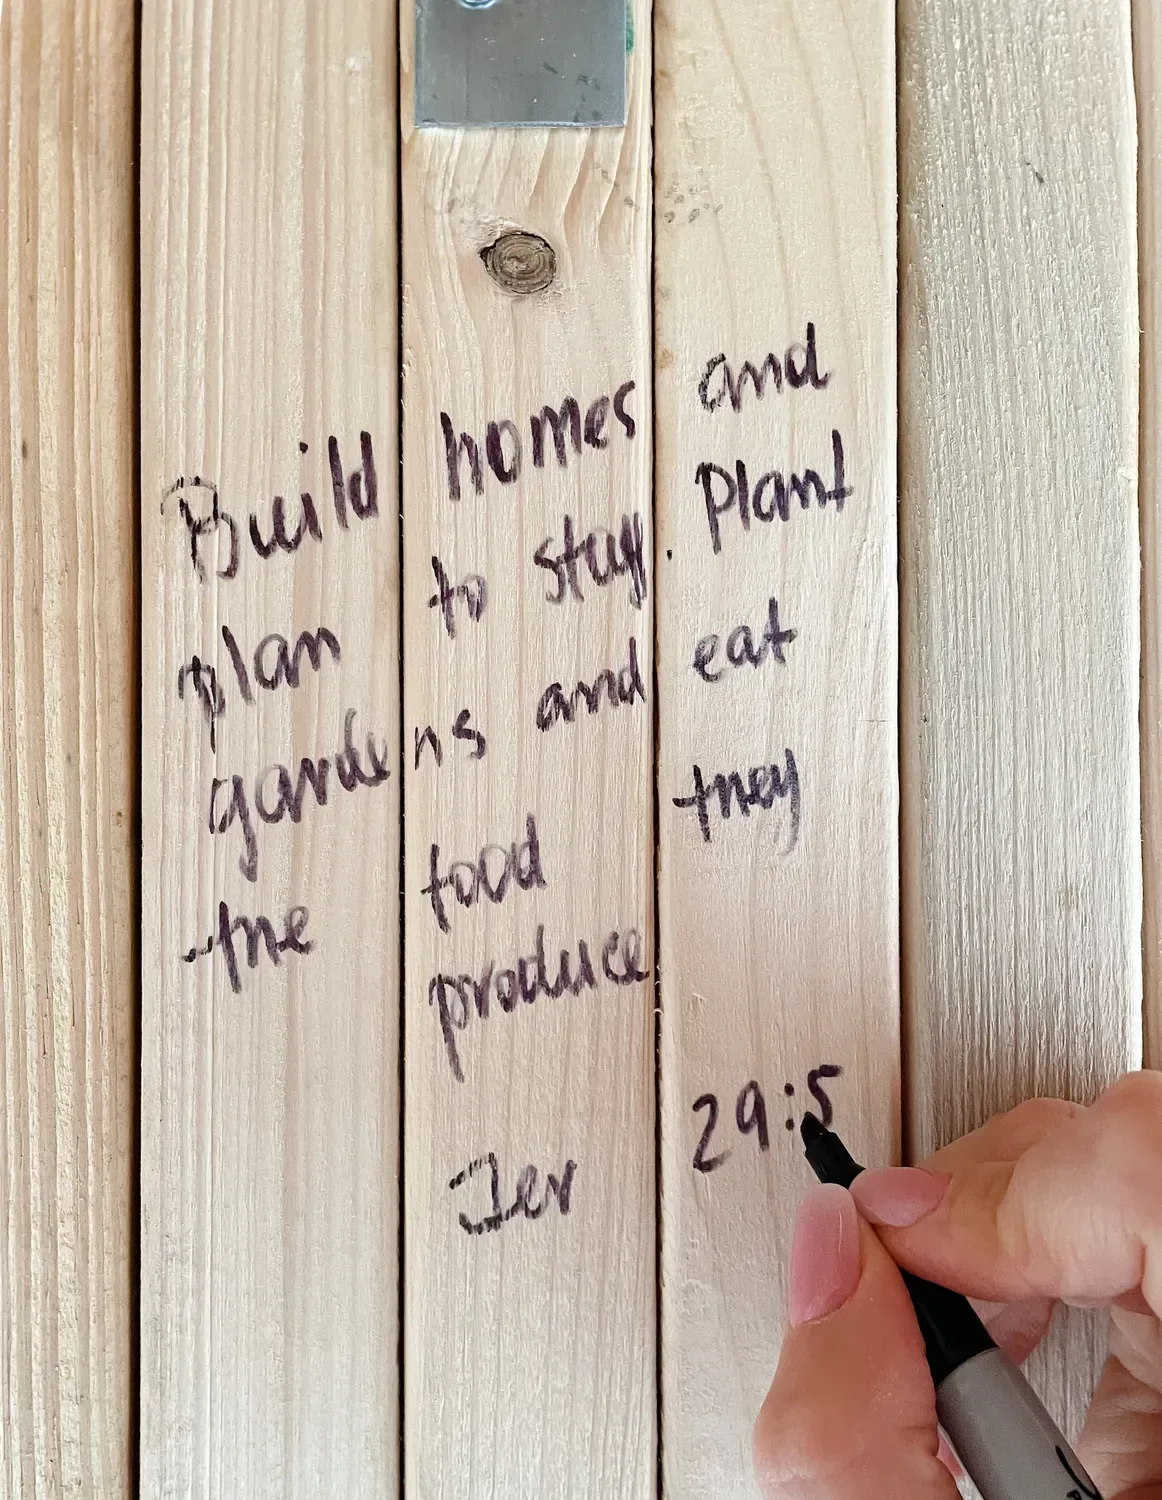 Build homes and
plan to stay. Plant
gardens and eat
the food they
produce
Jer 29:5